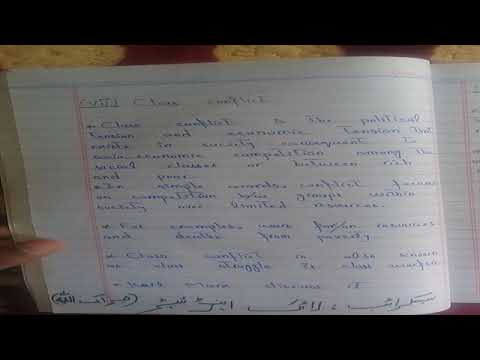 (VII) Class conflict
* Class conflict is the political
tension and economic tension that
exists in society consequent to
socio-economic competition among the
social classes or between rich
and poor.
* In simple words, conflict focuses
on competition groups within
society over limited resources.
* For examples, wars for resources
and deaths from poverty
* Class conflict is also known
as class struggle & class warfare
* Karl Marx discuss it
سبسکرائب، لائک اینڈ شیئر (جزاک اللہ)